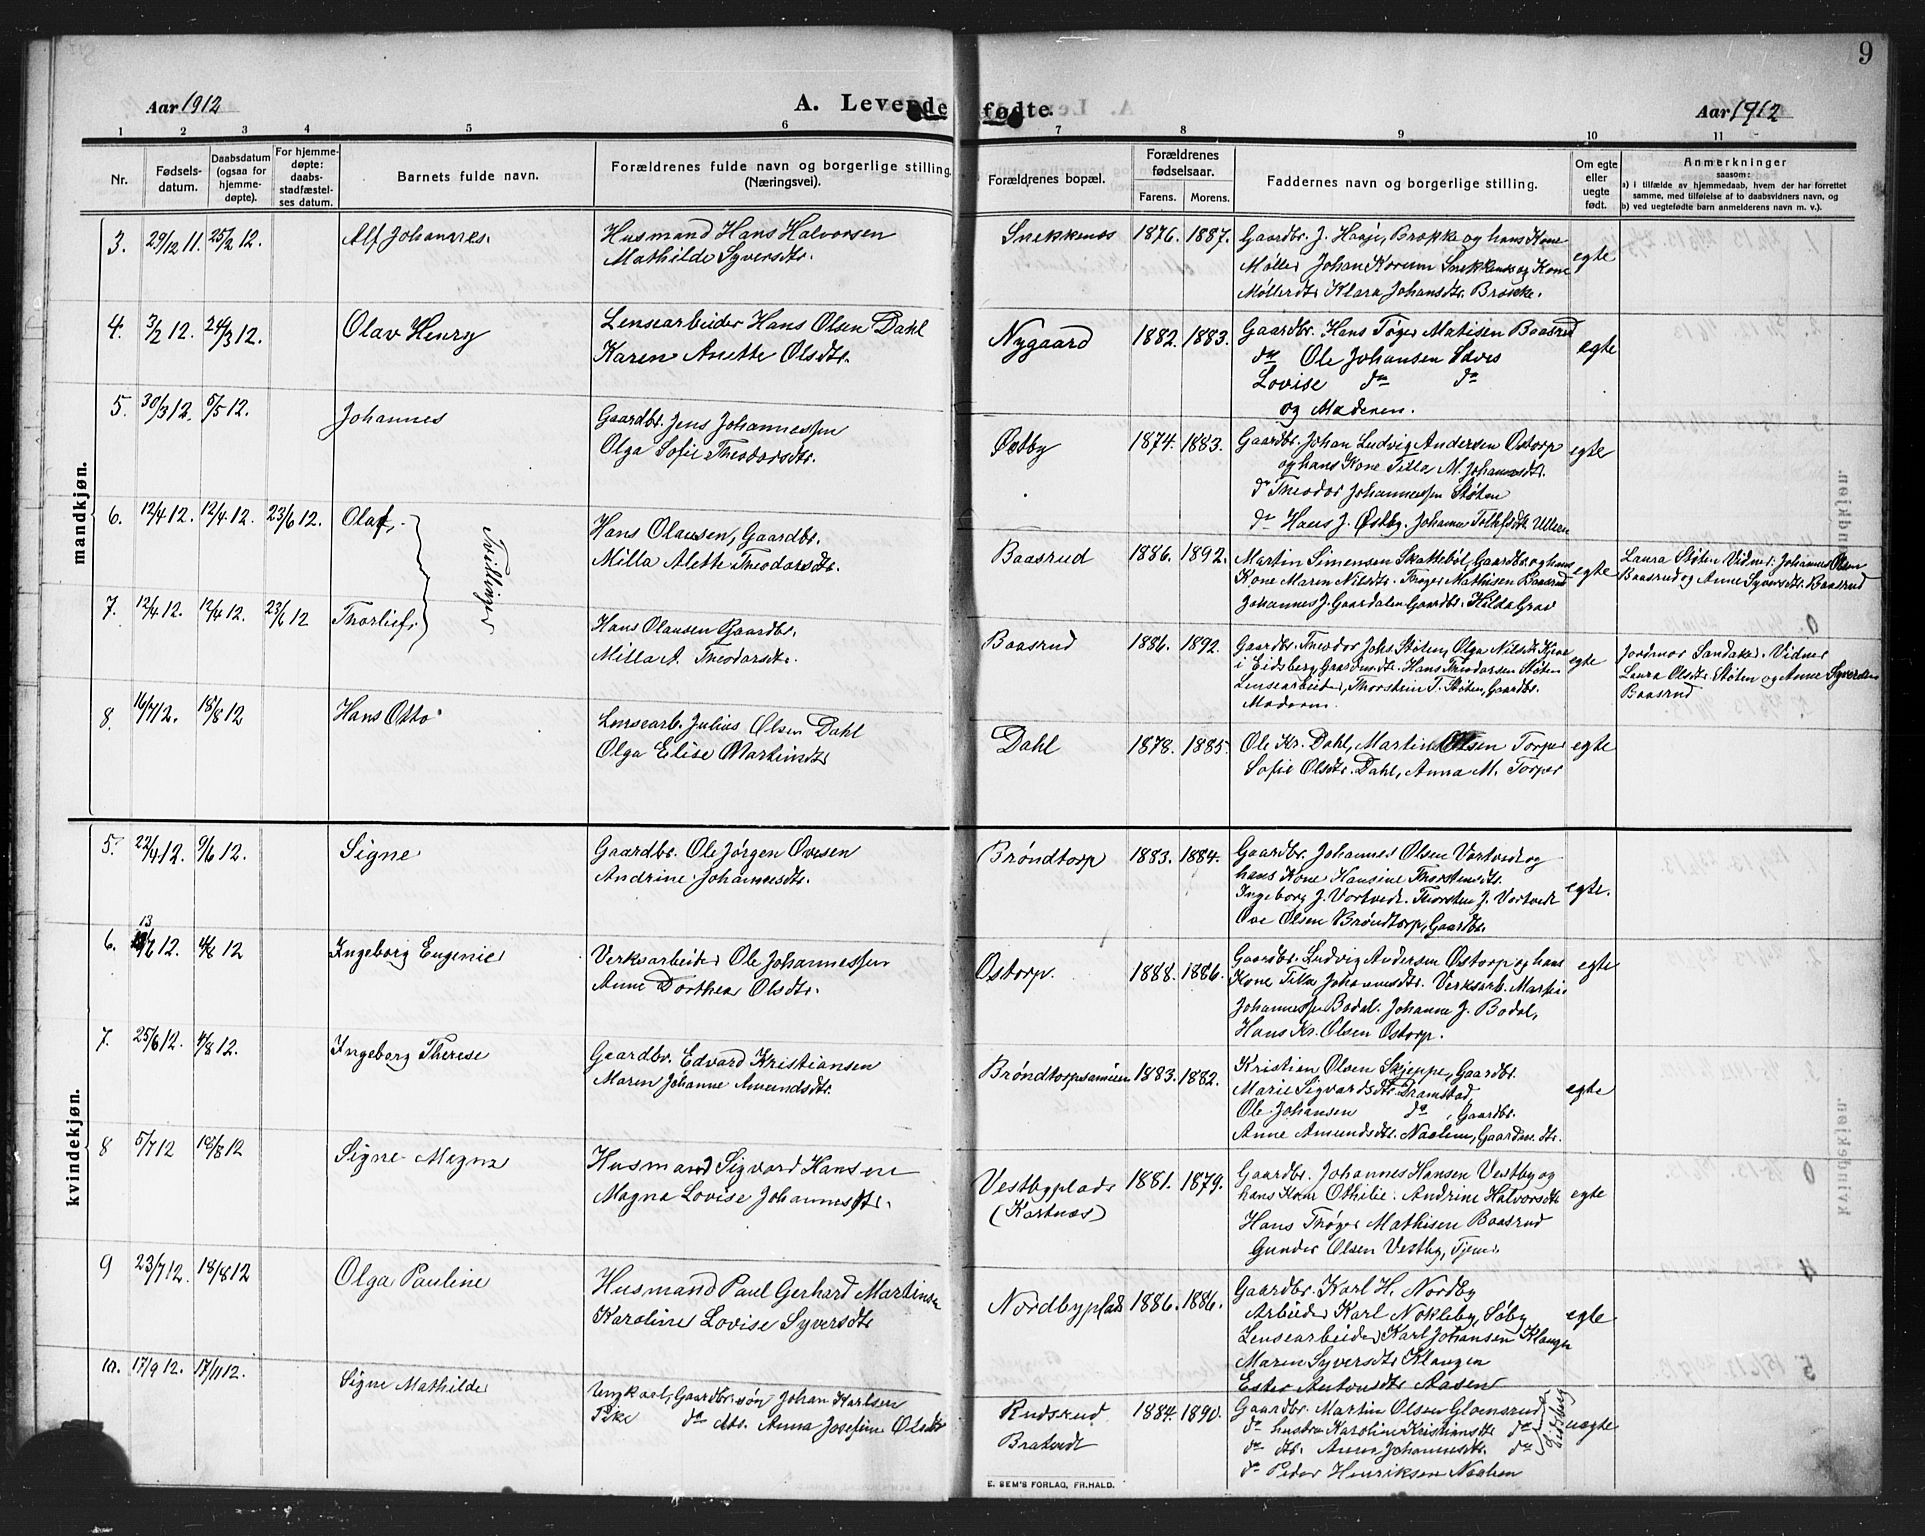 9
Aar 1912
A. Levendefødte.
Aar 1912
1 2 3 4 5 6 7 8 9 10 11
Nr.
Fødsels-
datum.
Daabsdatum
(ogsaa for
hjemme-
døpte).
For hjemme-
døpte:
daabs-
stadfæstel-
ses datum.
Barnets fulde navn.
Forældrenes fulde navn og borgerlige stilling.
(Næringsvei).
Forældrenes bopæl.
Forældrenes
fødselsaar.
Farens. Morens.
Faddernes navn og borgerlige stilling.
Om egte
eller
uegte
født.
Anmerkninger
saasom:
a) i tilfælde av hjemmedaab, hvem der har forrettet
samme, med tilføielse af to daabsvidners navn, og
b) ved uegtefødte barn anmelderens navn m. v.).
mandkjøn.
3. 29/12 11. 25/2 12. Alf Johannes.
Husmand Hans Halvorsen
Mathilde Syversdtr.
Snekkenes 1876. 1887.
Gaardbr. J. Haaje, Brokke og hans Kone
Møller Johan Korum Snekkenes og Kone
Møllerdtr Klara Johansdtr. Brokke.
egte
4. 3/2 12. 24/3 12. Olav Henry
Lensearbeider Hans Olsen Dahl
Karen Anette Olsdtr.
Nygaard 1882. 1883.
Gaardbr. Hans Tøger Matisen Baasrud
do Ole Johansen
Lovise do do
og Moderen.
egte
5. 30/3 12. 5/5 12. Johannes
Gaardbr. Jens Johannessen
Olga Sofie Theodorsdtr.
Østby 1874. 1883.
Gaardbr. Johan Ludvig Andersen Ostorp
og hans Kone Tilla M. Johannesdtr.
do Theodor Johannessen Støten
do Hans J. Østby. Johanne Ullern
egte
6. 12/4 12. 12/4 12. 23/6 12. Olaf,
Tvillinger
Hans Olausen, Gaardbr.
Milla Alette Theodorsdtr.
Baasrud 1886. 1892.
Martin Simensen Skattebøl, Gaardbr. og hans
Kone Maren Nilsdtr. Thøger Mathisen Baasrud
Johannes J. Gaardalen Gaardbr. Hilda Grav
egte
Laura Støten Vidner. Johannes Olsen
Baasrud og Anne Syversdtr. Baasrud
7. 12/4 12. 12/4 12. 23/6 12 Thorleif.
Hans Olausen Gaardbr.
Milla A. Theodorsdtr.
Baasrud 1886. 1892.
Gaardbr. Theodor Johs Støten, Olga Nilsdtr
i Eidsberg, Hans Theodorsen Støten
Lensearbeider, Thorstein T. Støten, Gaardbr.
Moderen.
egte
Jordmor Sandaker. Vidner
Laura Olsdtr. Støten og Anne Syversdtr
Baasrud
8 16/7 12. 18/8 12 Hans Otto
Lensearb. Julius Olsen Dahl
Olga Elise Martinsdtr
Dahl 1878. 1885.
Ole Kr. Dahl, Martin Olsen Torper
Sofie Olsdtr. Dahl, Anna M. Torper
egte
kvindekjøn.
5. 22/4 12. 9/6 12. Signe
Gaardbr. Ole Jørgen Ovesen
Andrine Johannesdtr.
Brøndtorp 1883. 1884.
Gaardbr. Johannes Olsen Vortvedt og
hans Kone Hansine Thorstensdtr.
Ingeborg J. Vortvedt. Thorsten J. Vortvedt
Ove Olsen Brøndtorp, Gaardbr.
egte.
6. 13/6 12. 4/8 12 Ingeborg Eugenie
Verksarbeider Ole Johannessen
Anne Dorthea Olsdtr.
Ostorp. 1888. 1886.
Gaardbr. Ludvig Andersen Ostorp og hans
Kone Tilla Johannesdtr. Verksarb. Martin
Johannessen Bodal. Johanne J. Bodal,
Hans Kr. Olsen Ostorp.
egte
7. 25/6 12. 4/8 12. Ingeborg Therese
Gaardbr. Edvard Kristiansen
Maren Johanne Amundsdtr.
Brøndtorpsameien 1883. 1882.
Kristian Olsen Skjeppe, Gaardbr.
Marie Sigvardsdtr. Dramstad
Ole Johansen do, Gaardbr.
Anne Amundsdtr. Naalen, Gaardm. dtr.
egte
8 5/7 12 18/8 12 Signe Magna
Husmand Sigvard Hansen
Magna Lovise Johannesdtr.
Vestbyplads
(Kortnæs)
1881. 1879.
Gaardbr. Johannes Hansen Vestby og
hans Kone Othilie. Andrine Halvorsdtr
Hans Thøger Mathisen Baasrud
Gunder Olsen Vestby, Tjener
egte
9 23/7 12. 18/8 12 Olga Pauline
Husmand Paul Gerhard Martinsen
Karoline Lovise Syversdtr
Nordbyplads 1886. 1886.
Gaardbr. Karl H. Nordby
Arbeider Karl Nokleby, Søby
Lensearbeider Karl Johansen Klaugen
Maren Syversdtr Klaugen
Ester Antonsdtr Aasen
egte
10. 17/9 12. 17/11 12. Signe Mathilde
Ungkarl, Gaardbr. søn Johan Karlsen
Pike do dtr. Anna Josefine Olsdtr
Rudsrud
Bratvedt
1884. 1890.
Gaardbr. Martin Olsen Glomsrud
do hustru Karoline Kristiansdtr do
do dtr. Anna Johannesdtr do
do Peder Henriksen Naalen
Eidsberg
uegte
E. SEM'S FORLAG, FR.HALD.